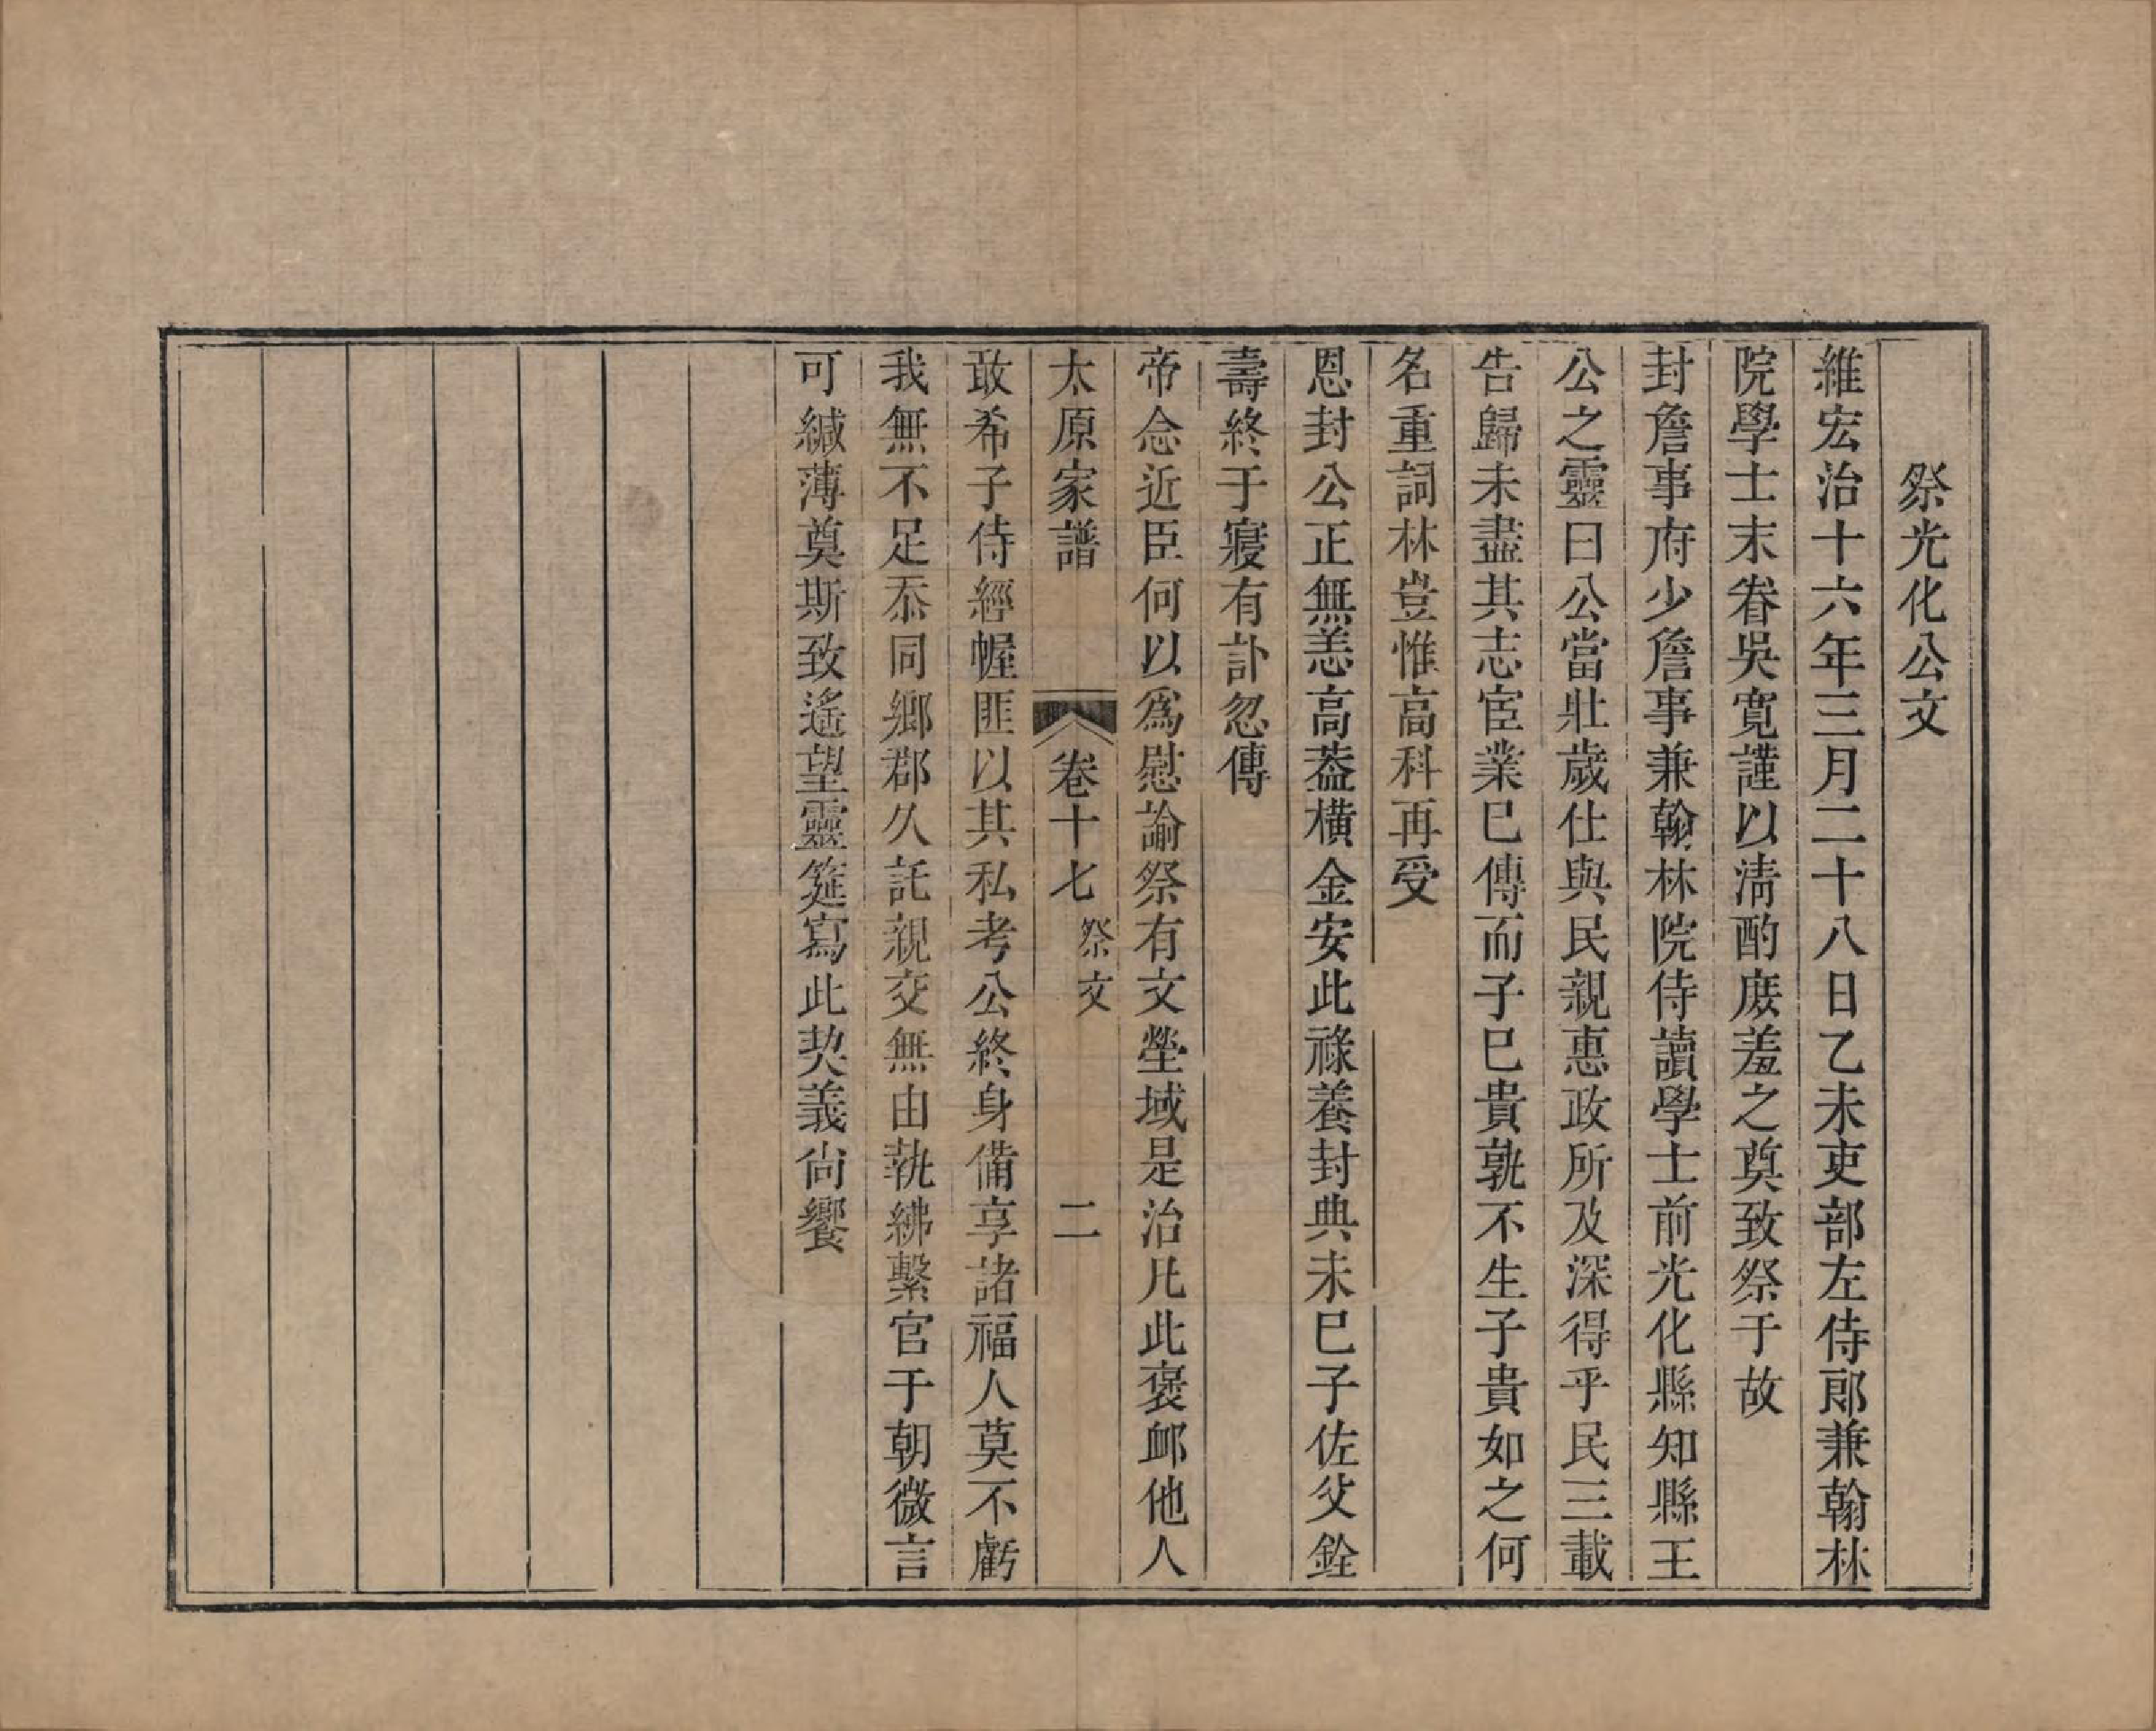 祭光化公文
維宏治十六年三月二十八日乙未吏部左侍郎兼翰林
院學士末眷吳寬謹以淸酌庻羞之奠致祭于故
封詹事府少詹事兼翰林院侍讀學士前光化縣知縣王
公之靈曰公當壯歲仕與民親惠政所及深得乎民三載
告歸未盡其志宦業巳傳而子巳貴孰不生子貴如之何
名重詞林豈惟高科再受
恩封公正無恙高葢橫金安此祿養封典未巳子佐父銓
壽終于寢有訃忽傳
帝念近臣何以爲慰諭祭有文塋域是治凡此褒卹他人
太原家譜 卷十七 祭文 二
敢希子侍經幄匪以其私考公終身備享諸福人莫不虧
我無不足忝同鄉郡久託親交無由執紼繫官于朝微言
可緘薄奠斯致遙望靈筵寫此契義尙饗